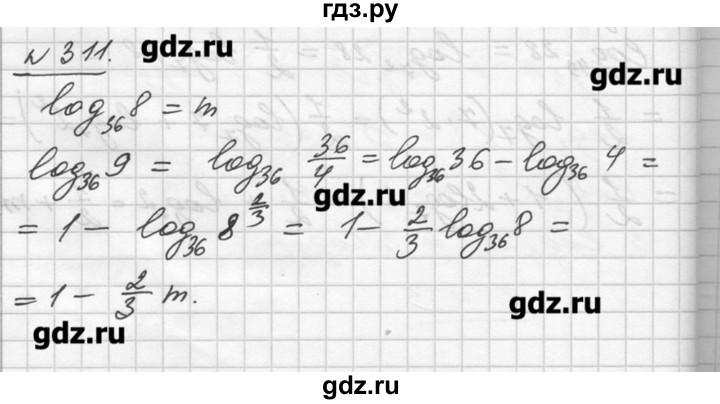 гдз.ру
№ 311.
gdz.ru
gdz.ru
log₃₆ 8 = m
log₃₆ 9 = log₃₆ 36/4 = log₃₆ 36 − log₃₆ 4 =
gdz.ru
= 1 − log₃₆ 8^(2/3) = 1 − 2/3 log₃₆ 8 =
= 1 − 2/3 m.
gdz.ru
gdz.ru
gdz.ru